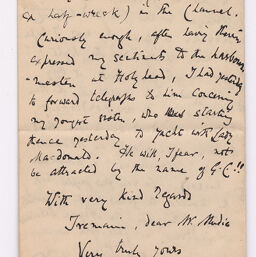 or half-wreck) in the Channel.
Curiously enough, after having
expressed my sentiments to the harbour-
master at Holyhead, I had yesterday
to forward telegraphs to him concerning
my youngest sister, who was starting
thence yesterday to yacht with Lady
Macdonald. He will, I fear, not
be attracted by the name of G.C.!!
With very kind regards
I remain, dear Mr.
Very truly yours